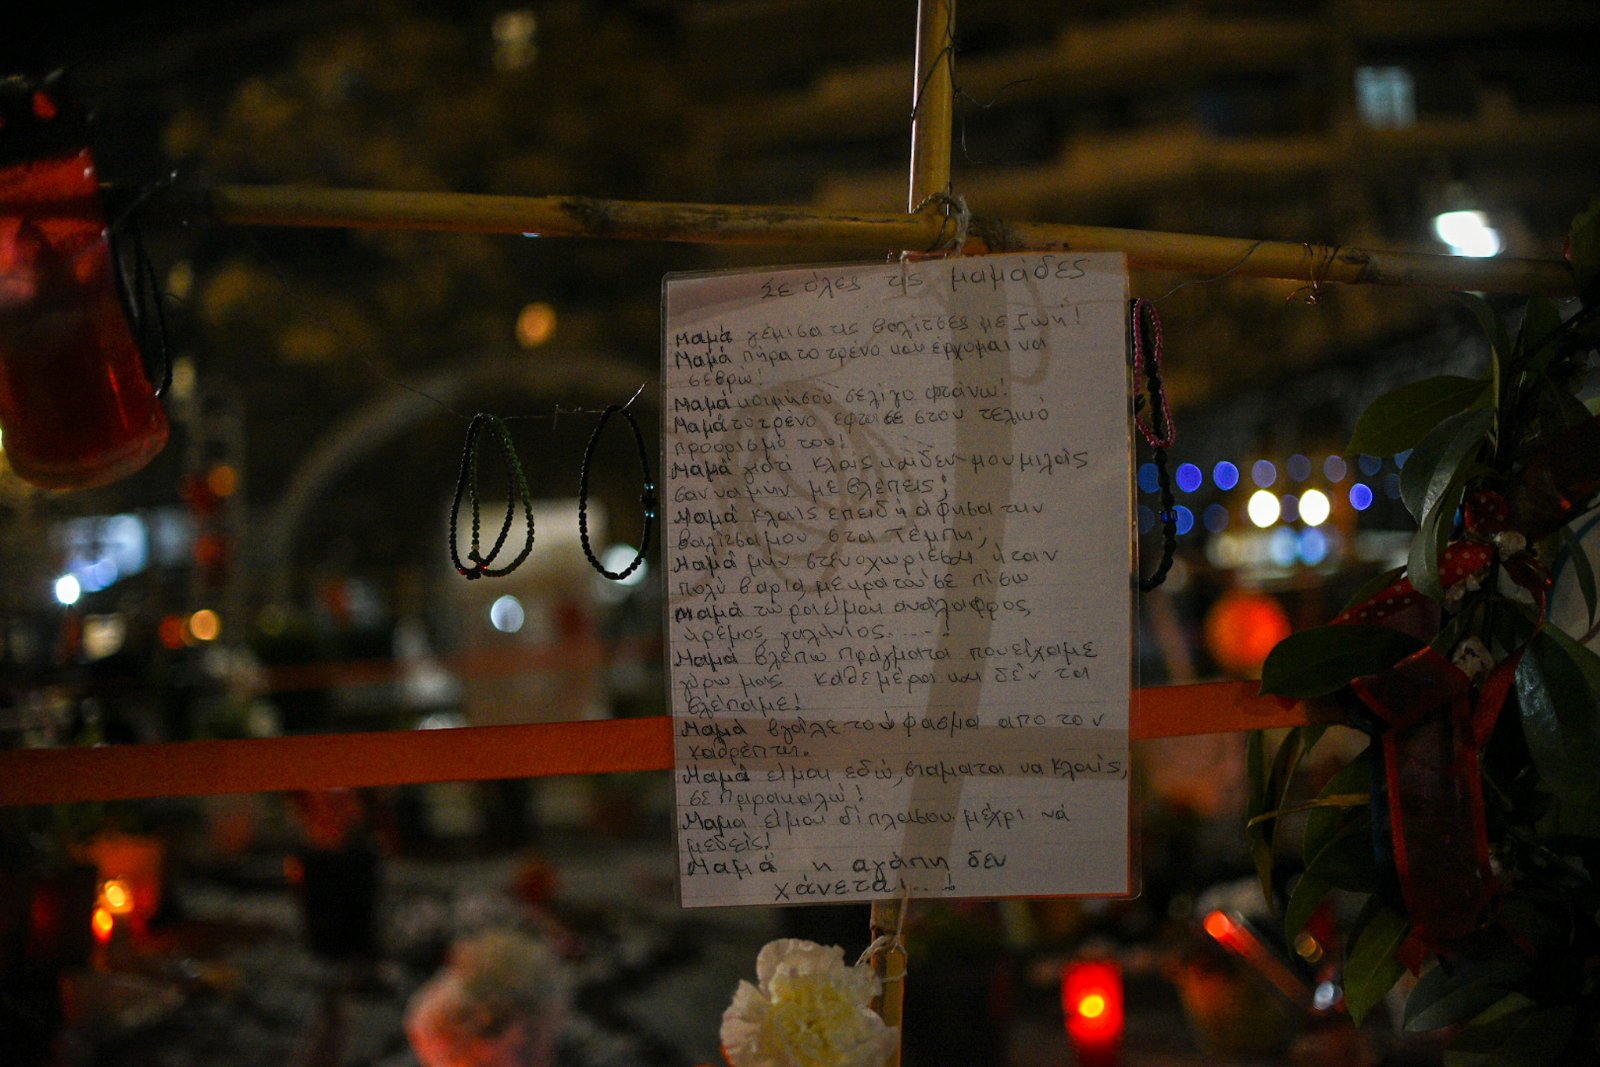 Σε όλες τις μαμάδες
Μαμά γέμισα τις βαλίτσες με ζωή!
Μαμά πήρα το τρένο και έρχομαι να
σε βρω!
Μαμά κοιμήσου σε λίγο φτάνω!
Μαμά το τρένο έφτασε στον τελικό
προορισμό του!
Μαμά γιατί κλαις και δεν μου μιλάς
σαν να μην με βλέπεις;
Μαμά κλαις επειδή άφησα την
βαλίτσα μου στα Τέμπη;
Μαμά μην στενοχωριέσαι ήταν
πολύ βαριά, με κρατούσε πίσω
Μαμά τώρα είμαι ανάλαφρος,
ήρεμος, γαλήνιος.....
Μαμά βλέπω πράγματα που είχαμε
γύρω μας καθεμέρα και δέν τα
βλέπαμε!
Μαμά βγάλε το φασμα απο τον
καθρέπτη.
Μαμά είμαι εδώ, σταματα να κλαίς,
σε παρακαλώ!
Μαμά είμαι δίπλα σου, μέχρι νά
Μαμά η αγάπη δεν
χάνεται..!